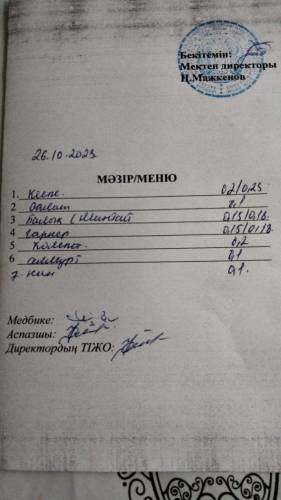 Бекітемін:
Мектеп директоры
Н.Мажкенов
26.10.2023
МӘЗІР/МЕНЮ
1. Кеспе. 0,2/0,25
2 Салат 0,1
3 Балық (Минтай 0,15/0,18
4 гарнер 0,15/0,18
5 Компот. 0,2
6 алмұрт 0,1
7. нан 0,1.
Медбике:
Аспазшы:
Директордың ТІЖО: